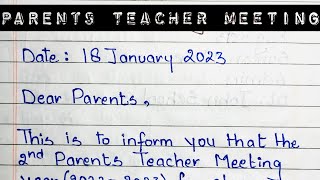 PARENTS TEACHER MEETING
Date: 18 January 2023
Dear Parents,
This is to inform you that the
2nd Parents Teacher Meeting